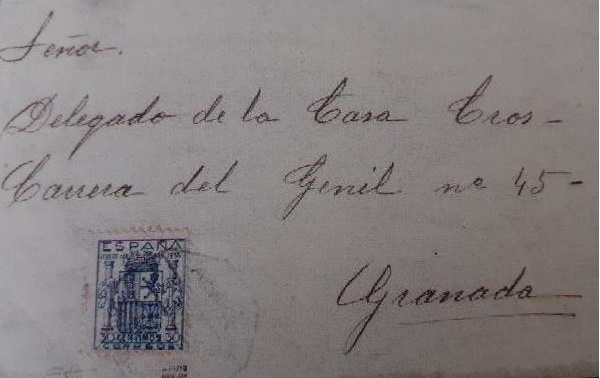 Señor.
Delegado de la Casa Cros-
Carrera del Genil nº 45-
Granada
ESPAÑA
CORREOS